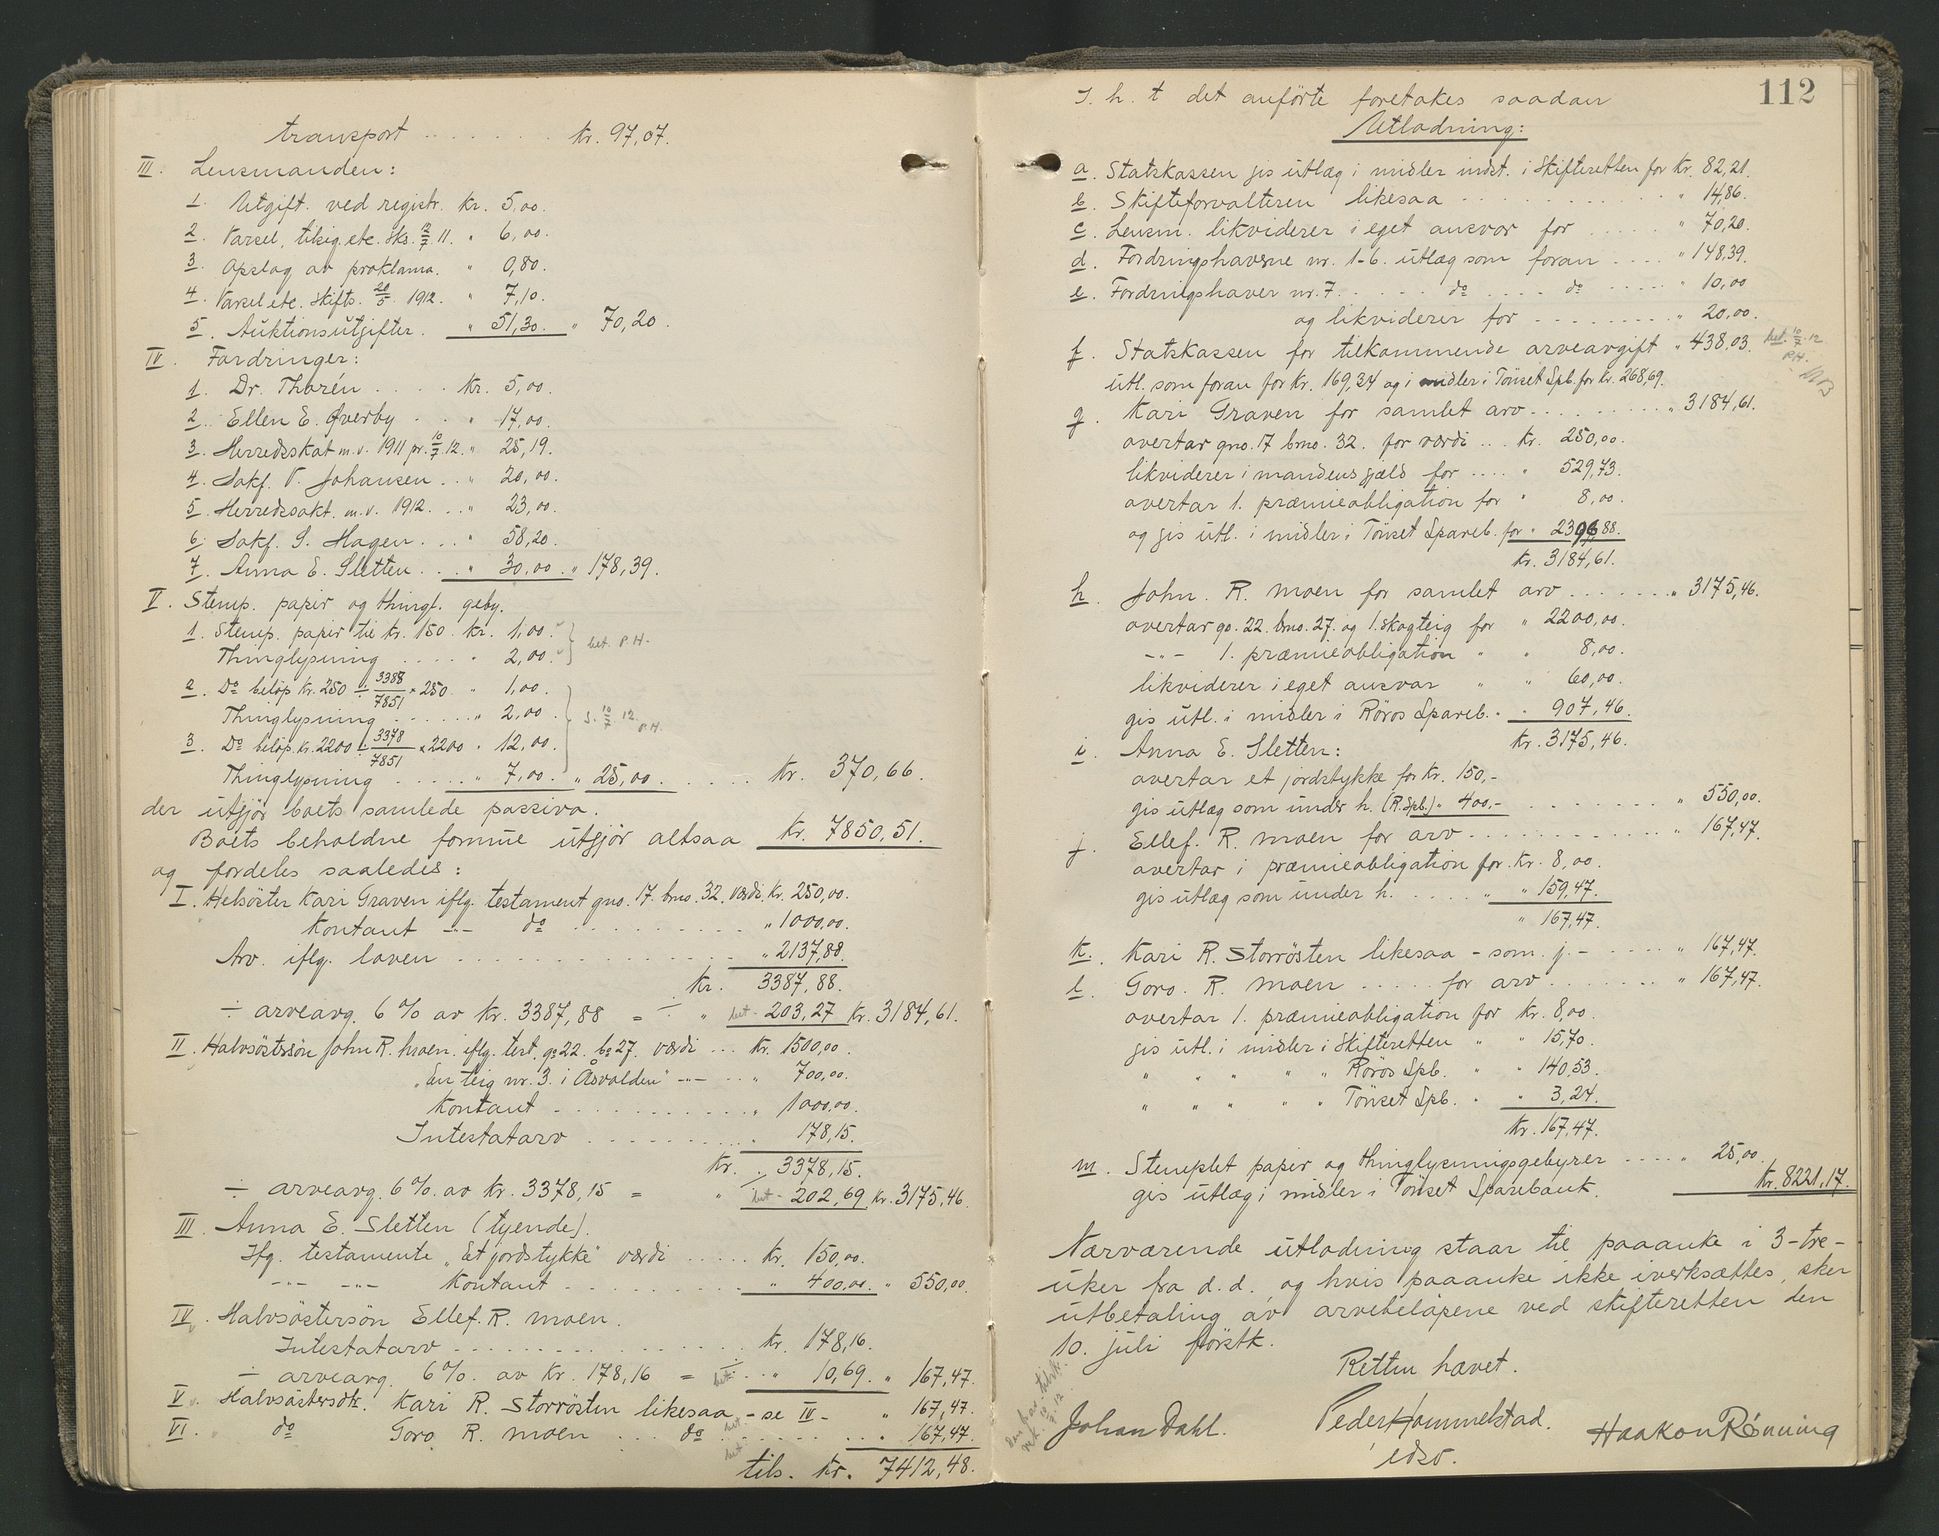 transport . . . . . . . kr. 97,07.
III. Lensmanden:
1. Utgift. ved registr. kr. 5,00.
2. Varsel, tilsig. etc. sks. 2/7 11. " 6,00.
3. Opslag av proklama. " 0,80.
4. Varsel etc. skifts. 20/5 1912. " 7,10.
5. Auktionsutgifter. " 51,30. " 70,20.
IV. Fordringer:
1. Dr. Thorén . . . . kr. 5,00.
2. Ellen E. Øverby . . " 17,00.
3. Herredsskat m.v. 1911 pr. 10/7 12. " 25,19.
4. Sakf. V. Johansen . . " 20,00.
5. Herredsskt. m.v. 1912. . . " 23,00.
6. Sakf. S. Hagen . . . " 58,20.
7. Anna E. Sletten . . . " 30,00. " 178,39.
V. Stemp. papir og thingl. geby.
1. Stemp. papir til kr. 150. kr. 1,00.
Thinglysning . . . . " 2,00. bet. P.H.
2. Do beløp kr. 250 ÷ 3388/7851 × 250 " 1,00.
Thinglysning . . . . . . " 2,00. S. 10/7 12. P.H.
3. Do beløp. kr. 2200 ÷ 3378/7851 × 2200 " 12,00.
Thinglysning . . . . . " 7,00. " 25,00. . . . . kr. 370,66.
der utgjør boets samlede passiva.
Boets beholdne formue utgjør altsaa kr. 7850,51.
og fordeles saaledes:
I. Helsøster Kari Graven iflg. testament gno. 17. brno. 32. værdi. kr. 250,00.
Kontant -"- do . . . . . . . . . " 1000,00.
Arv. iflg. loven . . . . . . . . . . . . . " 2137,88.
kr. 3387,88.
÷ arveavg. 6% av kr. 3387,88 = ÷ " bet. 203,27 kr. 3184,61.
II. Halvsøstersøn John R. Moen. iflg. test. go 22. bo 27. værdi . . . kr. 1500,00.
"En teig nr. 3. i Åsvolden" -"- . . . " 700,00.
Kontant . . . . . . . . . . . " 1000,00.
Intestatarv . . . . . . . . . . 178,15.
kr. 3378,15.
÷ arveavg. 6%. av kr. 3378,15 = " bet. 202,69 kr. 3175,46.
III. Anna E. Sletten (tyende).
Ifg. testamente "Et jordstykke" værdi . . . . . kr. 150,00.
-"- -"- Kontant . . . . . . . . . . " 400,00. " 550,00.
IV. Halvsøstersøn Ellef. R. Moen.
Intestatarv . . . . . . . . . . . . . . . . kr. 178,16.
÷ arveavg. 6%. av kr. 178,16 = ÷ bet. " 10,69 " 167,47.
V. Halvsøstersdtr. Kari R. Storrøsten likesaa - se IV - " 167,47.
VI. do Goro R. Moen . . . do . . . . . . . . " 167,47.
tils. kr. 7412,48.
112
I. h. t det anførte foretakes saadan
Utlodning:
a. Statskassen gis utlæg i midler indst. i Skifteretten for kr. 82,21.
b. Skifteforvalteren likesaa . . . . . . . . . . " 14,86.
c. Lensm. likviderer i eget ansvar for . . . . . " 70,20.
d. Fordringshaverne nr. 1-6. utlæg som foran . . . . " 148,39.
e. Fordringshaver nr. 7. . . . . do . . . . do . . . . " 10,00
og likviderer for . . . . . . . . " 20,00.
f. Statskassen for tilkommende arveavgift " 438,03. bet. 10/7 12 P.H.
utl. som foran for kr. 169,34 og i midler i Tönset Spb. for kr. 268,69. NB
g. Kari Graven for samlet arv . . . . . . . . . " 3184,61.
overtar gno. 17 brno. 32. for værdi . . kr. 250,00.
likviderer i mandens gjæld for . . . . " 529,73.
overtar 1. præmieobligation for " 8,00.
og gis utl. i midler i Tönset Spareb. for " 2396,88.
kr. 3184,61.
h. John. R. Moen for samlet arv . . . . . . . " 3175,46.
overtar go. 22. brno. 27. og 1. skogteig for " 2200,00.
-"- 1. præmieobligation " " 8,00.
likviderer i eget ansvar " " 60,00.
gis utl. i midler i Röros Spareb. " . 907,46.
kr. 3175,46.
i. Anna E. Sletten:
overtar et jordstykke for kr. 150,-
gis utlæg som under h. (R. Spb.) " 400,- . . . . . . . . " 550,00.
j. Ellef. R. Moen for arv . . . . . . . . . . . . " 167,47.
overtar 1 præmieobligation for kr. 8,00.
gis utlæg som under h. . . . . " " 159,47.
" 167,47.
k. Kari R. Storrösten likesaa - som. j. - . . . . " 167,47.
l. Goro. R. Moen . . . . . for arv . . . . . . . " 167,47.
overtar 1. præmieobligation for kr. 8,00.
gis utl. i midler i Skifteretten " " 15,70.
" " " " " Röros Spb. " " 140,53.
" " " " " Tönset Spb. " " 3,24.
kr. 167,47.
m. Stemplet papir og thinglysningsgebyrer . . . . " 25,00.
gis utlæg i midler i Tönset Sparebank. kr. 8221,17.
Nærværende utlodning staar til paaanke i 3-tre-
uker fra d. d. og hvis paaanke ikke iverksættes, sker
utbetaling av arvebeløpene ved skifteretten den
10. juli førstk.
Retten hævet.
Johan Dahl. Peder Hommelstad. Haakon Rønning
edsv.